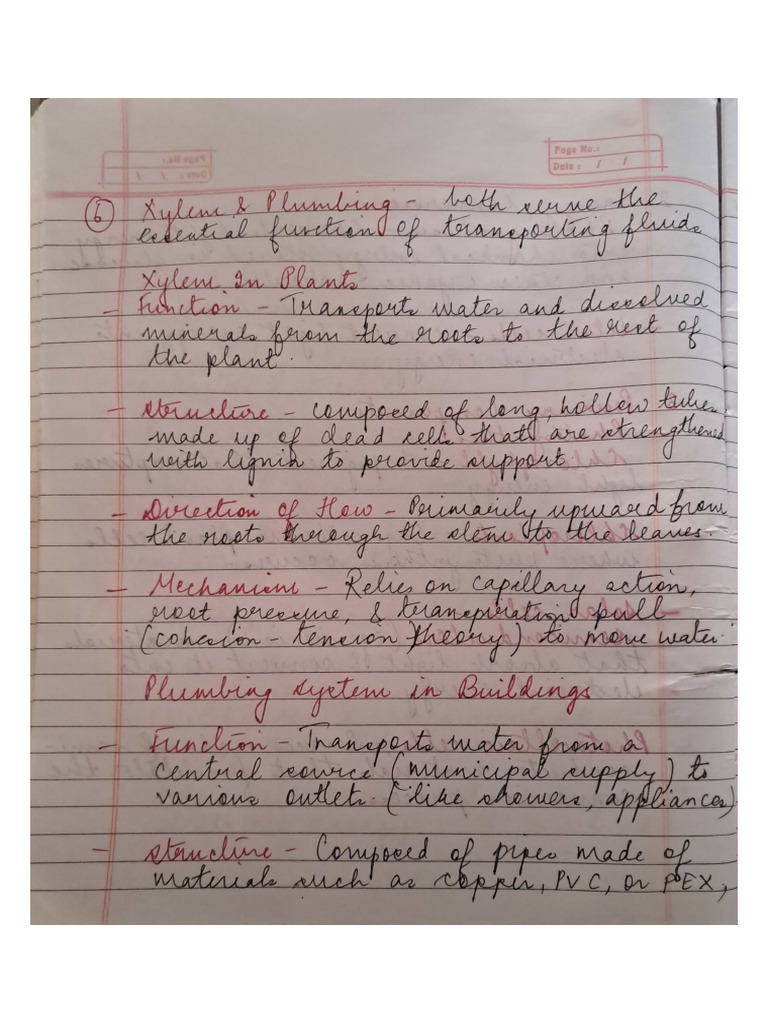 Page No.:
Date : / /
6 Xylem & Plumbing - both serve the
essential function of transporting fluids
Xylem In Plants
- Function - Transports water and dissolved
minerals from the roots to the rest of
the plant.
- Structure - composed of long, hollow tubes
made up of dead cells that are strengthened
with lignin to provide support.
- Direction of Flow - Primarily upward from
the roots through the stem to the leaves.
- Mechanism - Relies on capillary action,
root pressure, & transpiration pull
(cohesion - tension theory) to move water.
Plumbing system in Buildings
- Function - Transports water from a
central source (municipal supply) to
various outlets (like showers, appliances)
- Structure - Composed of pipes made of
materials such as copper, PVC, or PEX,